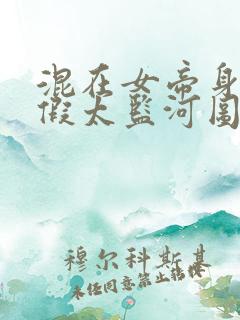 混在女帝身
假太监河图
穆尔科斯基
未经同意禁止转换